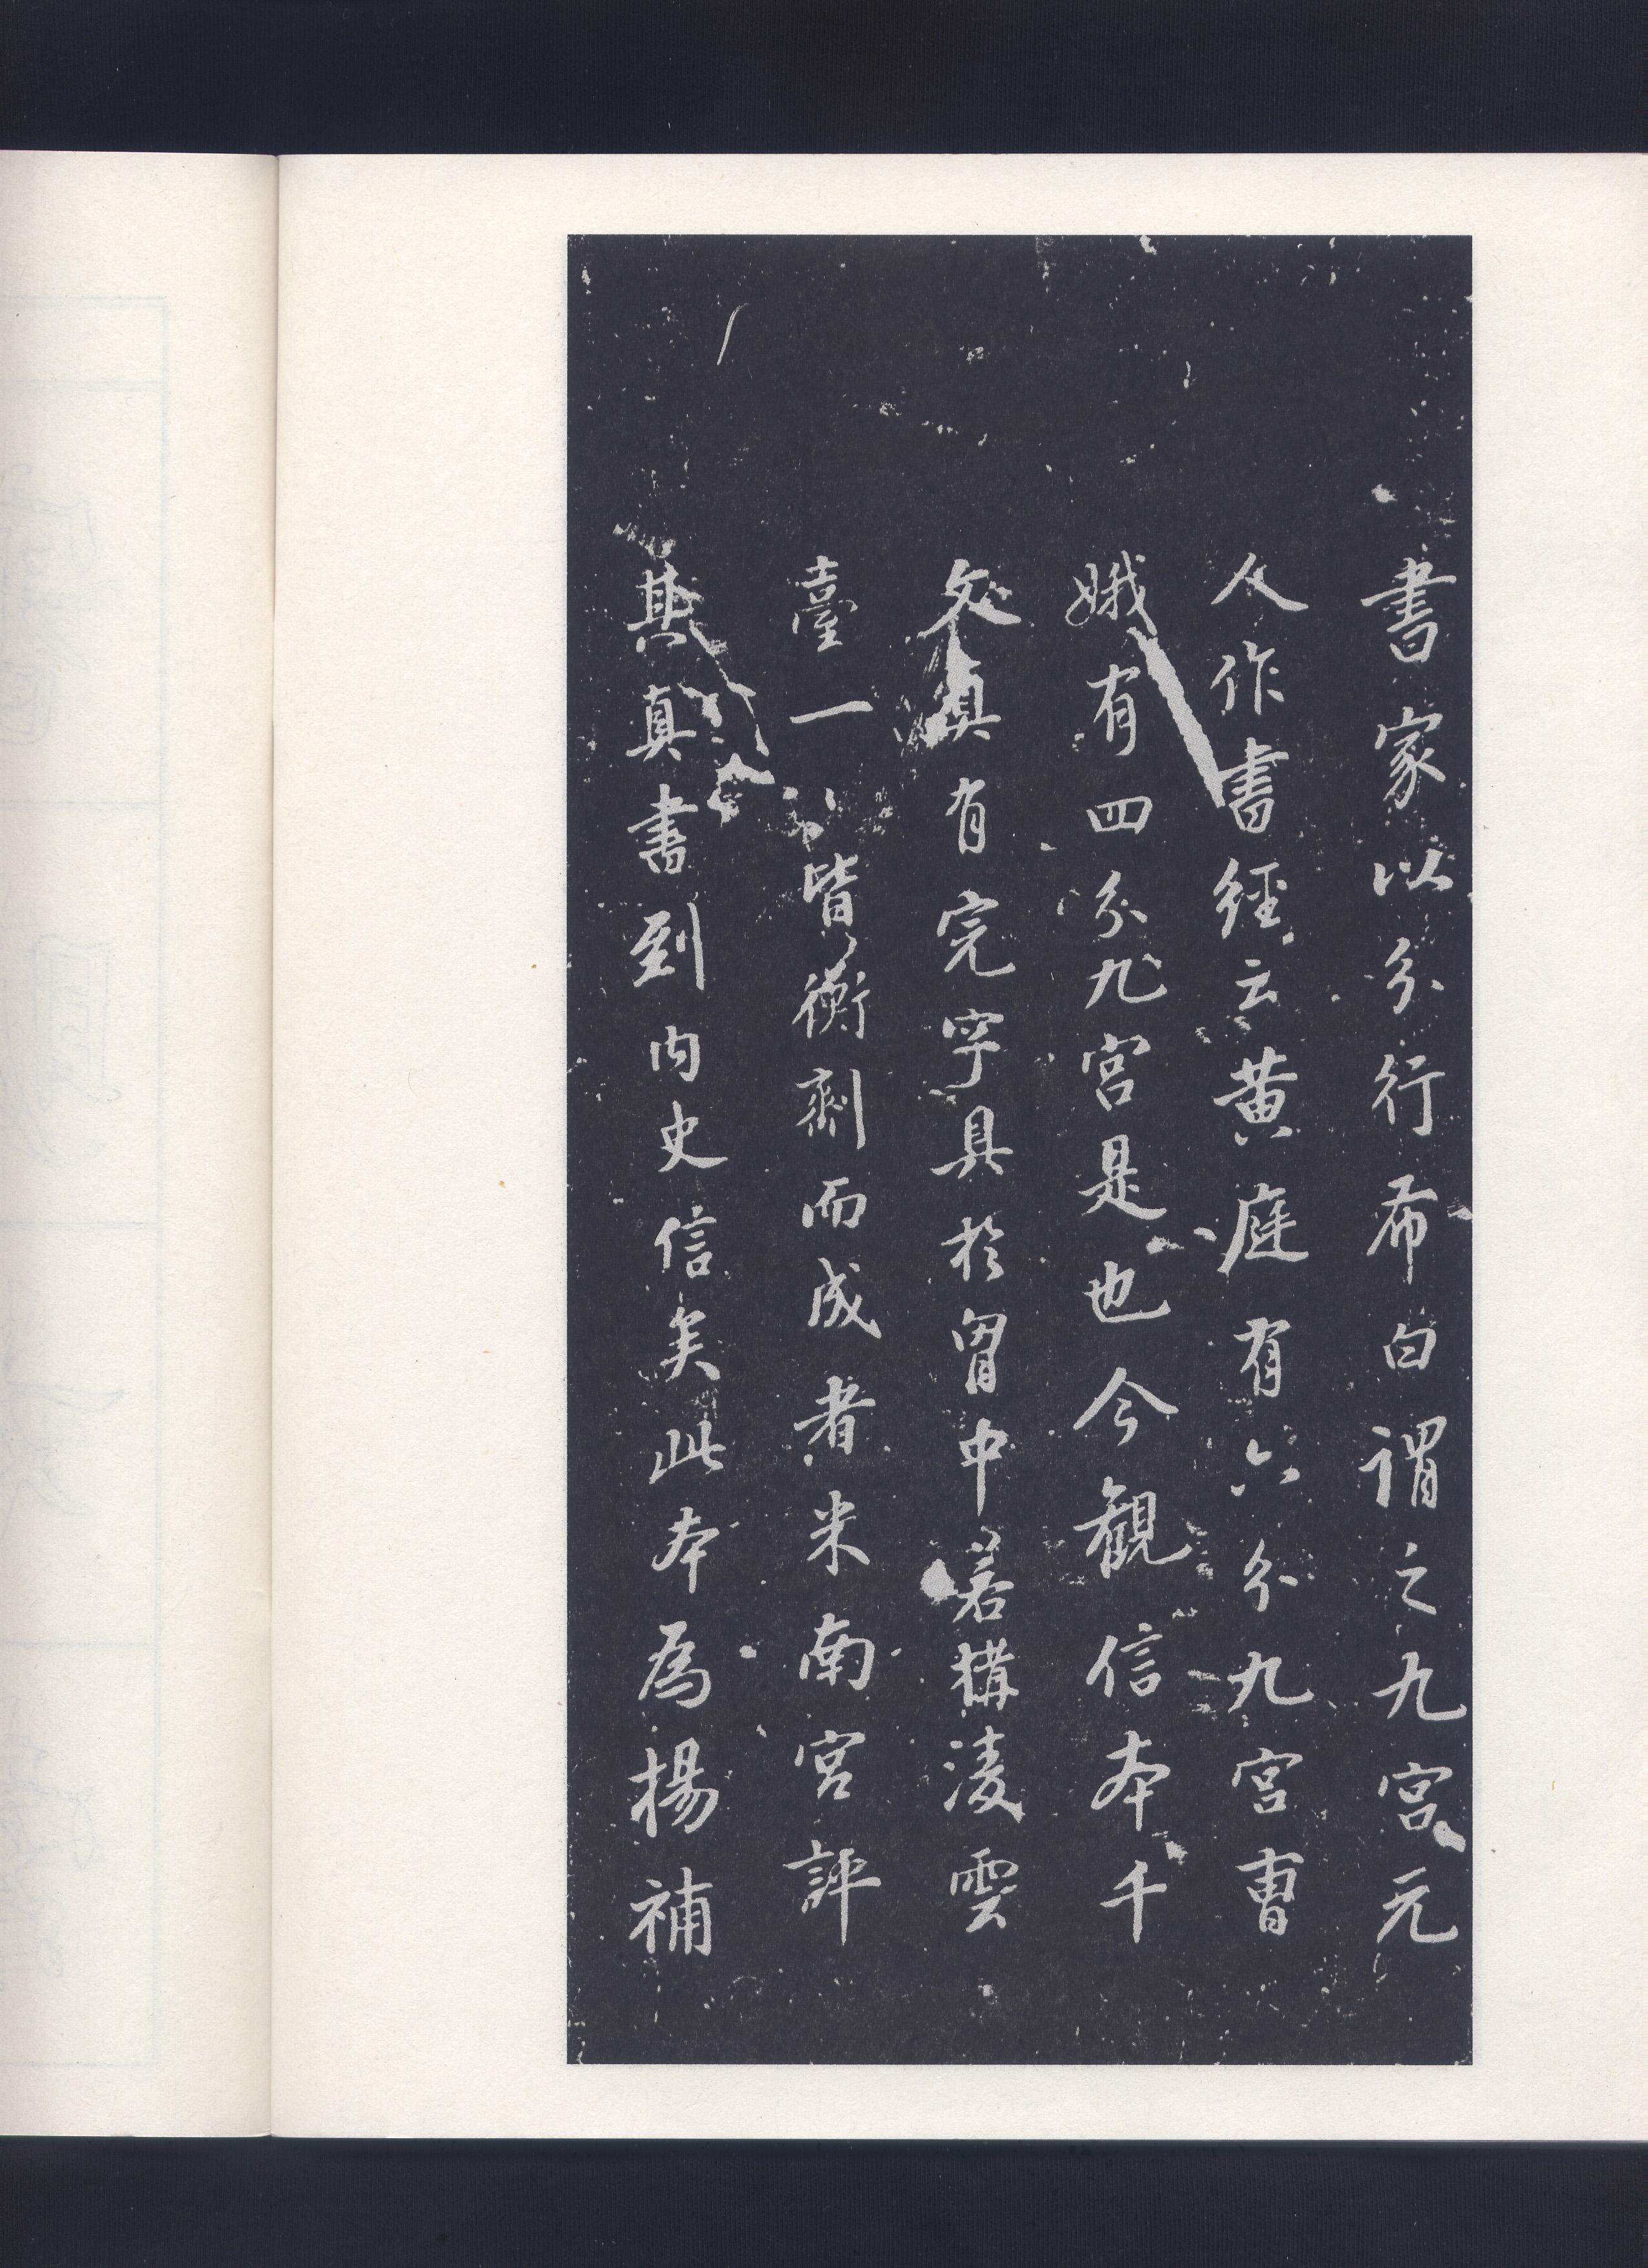 書家以分行布白謂之九宮元
人作書經云黃庭有六分九宮曹
娥有四分九宮是也今觀信本千
文真有完字具於胷中若構凌雲
臺一一皆衡劑而成者米南宮評
其真書到內史信矣此本為楊補